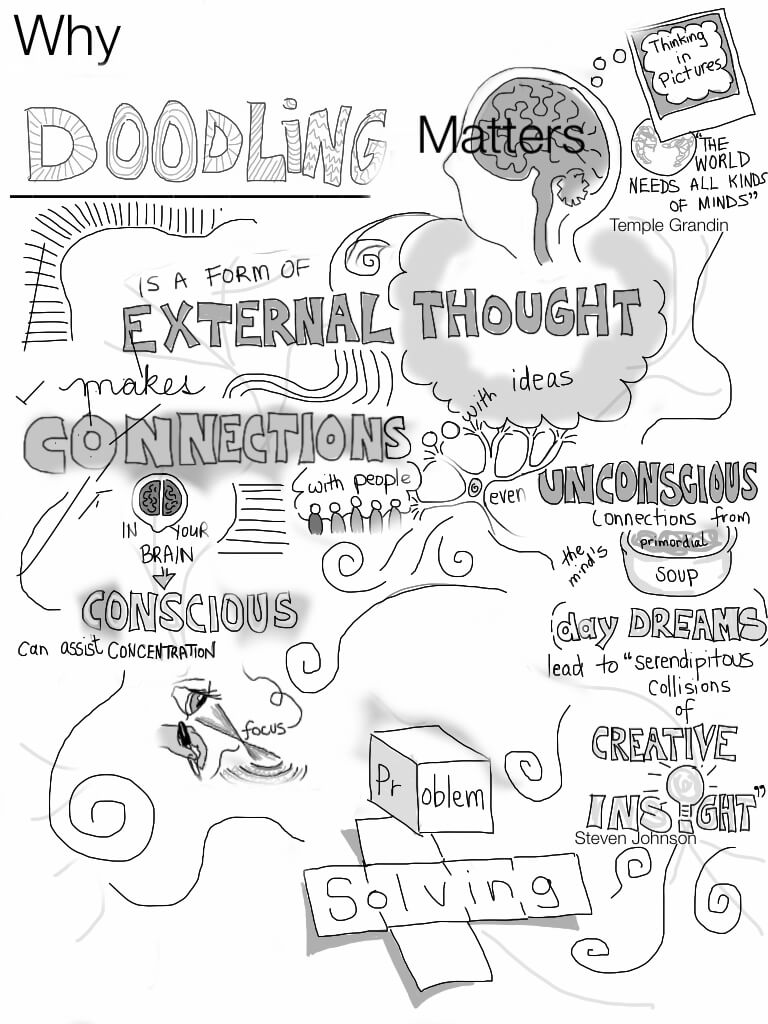 Why
DOODLING
Matters
Thinking
in
Pictures
"THE
WORLD
NEEDS ALL KINDS
OF MINDS"
Temple Grandin
IS A FORM OF
EXTERNAL THOUGHT
makes
CONNECTIONS
with ideas
with people
IN YOUR
BRAIN
even UNCONSCIOUS
Connections from
the
mind's
primordial
SOUP
CONSCIOUS
can assist CONCENTRATION
focus
(day DREAMS)
lead to "serendipitous
Collisions
of
CREATIVE
INSIGHT"
Steven Johnson
Problem
Solving